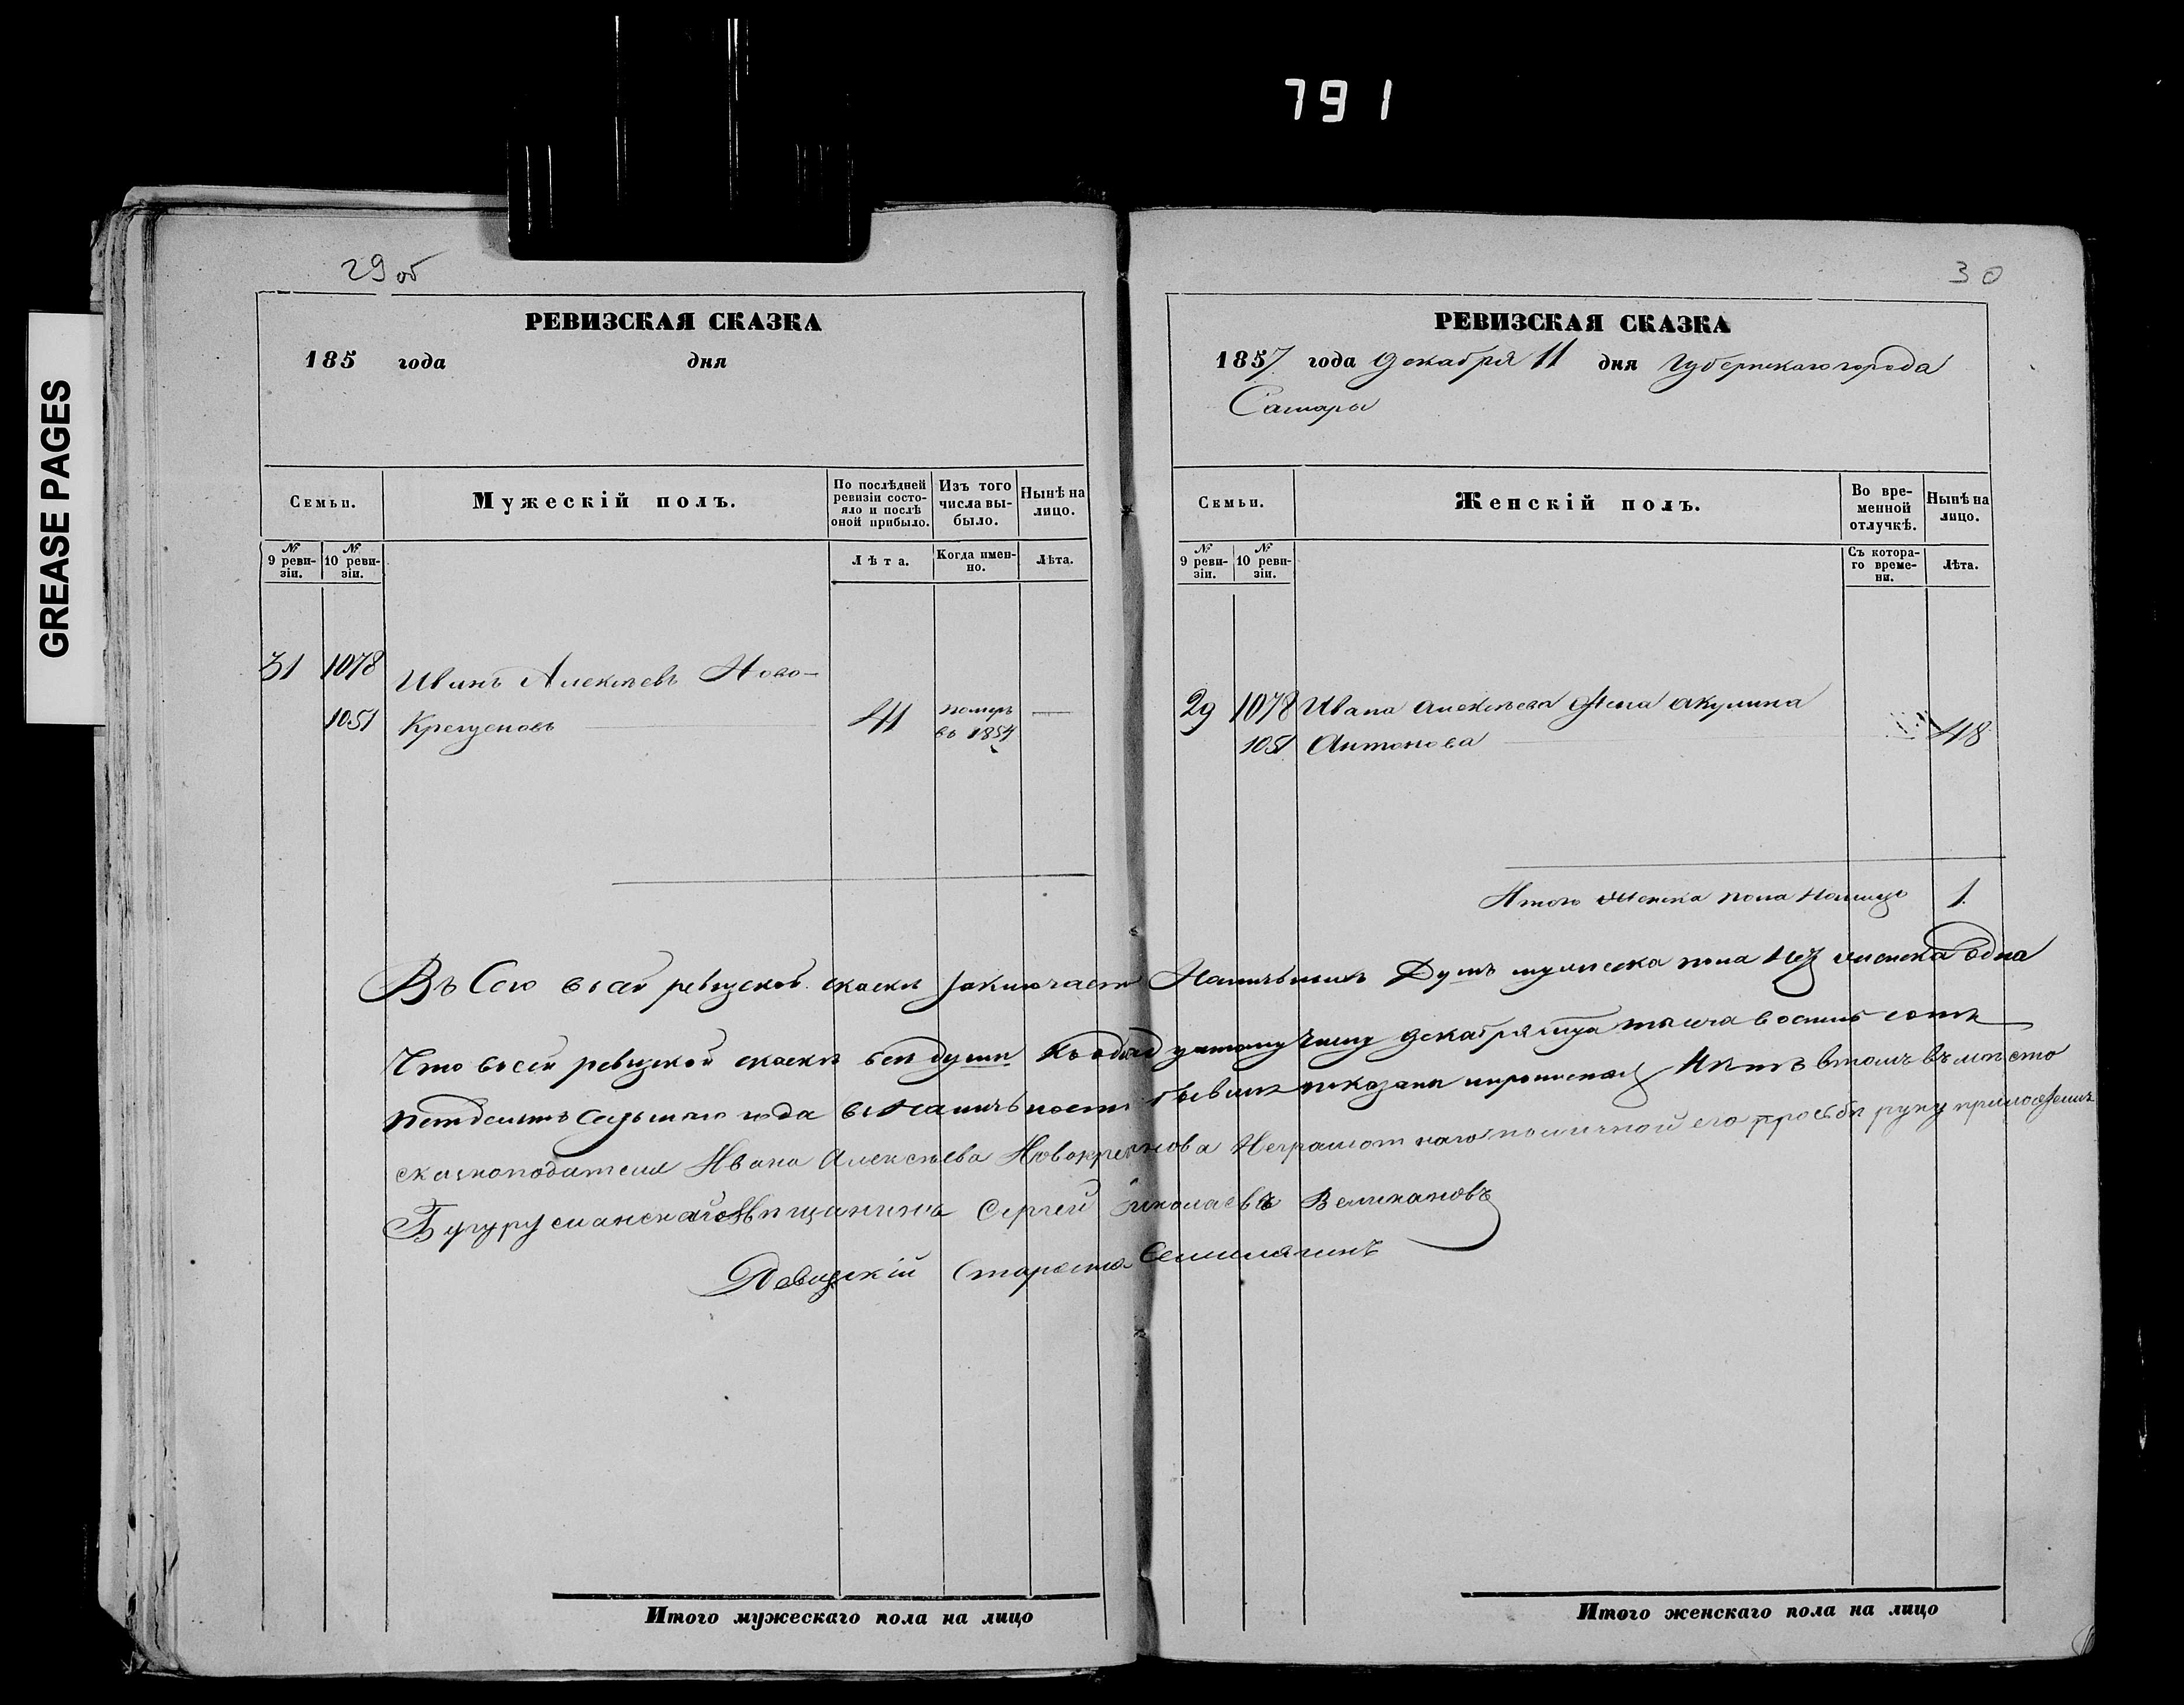 791
GREASE PAGES
29 об
РЕВИЗСКАЯ СКАЗКА
185 года дня
Семьи.
Мужескій полъ.
По послѣдней ревизіи состояло и послѣ оной прибыло.
Изъ того числа выбыло.
Нынѣ на лицо.
№ 9 ревизіи.
№ 10 ревизіи.
Лѣта.
Когда именно.
Лѣта.
31 1078 Иванъ Алексѣевъ Ново-
1051 Крещеновъ 41 померъ въ 1854 —
30
РЕВИЗСКАЯ СКАЗКА
1857 года декабря 11 дня Губернскаго города
Самары
Семьи.
Женскій полъ.
Во временной отлучкѣ.
Нынѣ на лицо.
№ 9 ревизіи.
№ 10 ревизіи.
Съ котораго времени.
Лѣта.
29 1078 Ивана Алексѣева жена Акулина
1051 Антонова 48
Итого женска пола налицо 1.
Въ сей ревизской скаски заключает Наличныхъ Душъ мужеска пола женска одна
Что въсей ревизской скаске все души числу декабря тысеча восемь сотъ
петдесятъ седьмаго года въ наличьности бывшие показаны Нетъ втомъ въместо
скаскоподателя Ивана Алексѣева Неграмотнаго поличной его прозьбе руку приложилъ
Бугурусланской Мѣщанинъ Сергей Николаевъ Великановъ
Ревизскій Староста
Итого мужескаго пола на лицо
Итого женскаго пола на лицо